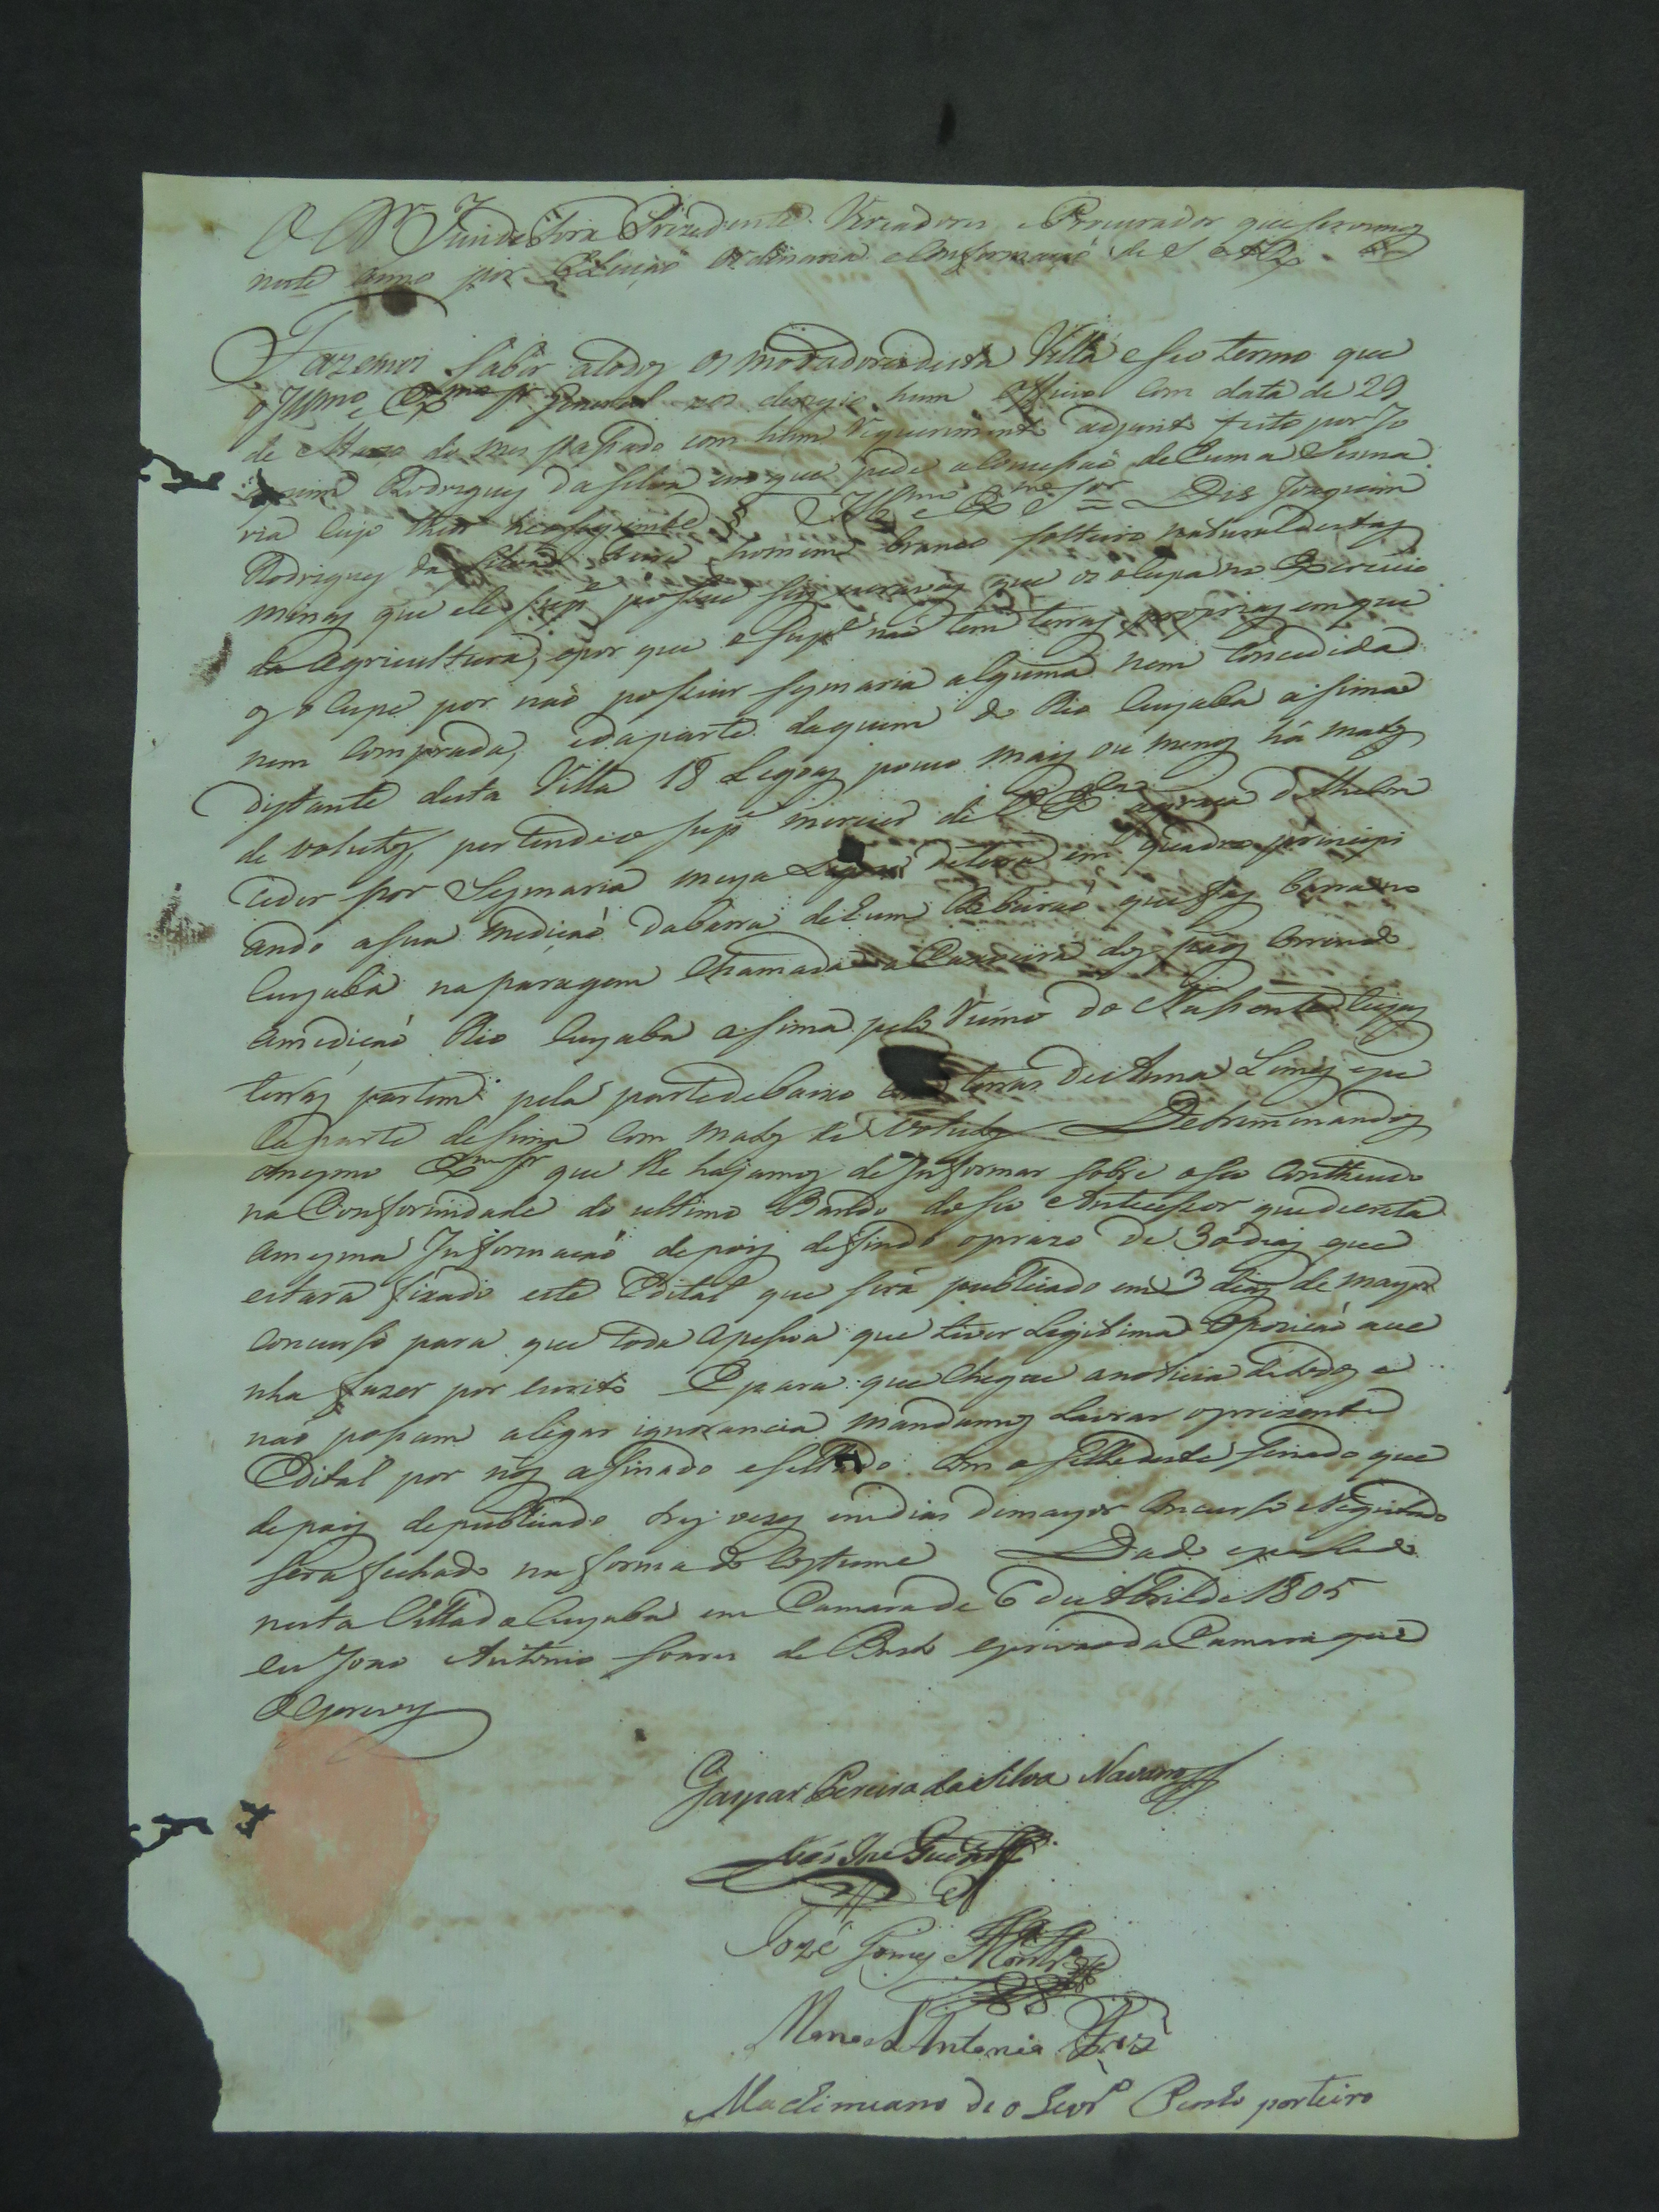 O Dr Juiz de Fora Prezidente Vereadores e Procurador que servimos
neste anno por Elleicaõ ordinaria e Confirmacaõ de S A R
Fazemos saber atodos os moradores desta Villa eseo termo que
o Illmo e Exmo Sr General nos deregio hum officio Com data de 29
de Marso do mes passado com hum Requerimento adjunto feito por Jo
aquim Rodrigues da Silva em que pede a Concessaõ de huma Sesma
ria Cujo theor he oseguinte Illmo e Exmo Sor = Dis Joaquim
Rodrigues da Silva homem branco solteiro natural destas
minas que ele supe possue escravos que os oCupa no Exercicio
da Agricultura, epor que o Supe naõ tem terras proprias em que
os oCupe por naõ possuir sesmaria alguma nem Concedida
nem Comprada, e da parte daquem do Rio Cuyaba asima
distante desta Villa 18 Legoas pouco mais ou menos há matos
de volutos, pertende o supe merecer de V Exa agraca de lhe Con
ceder por Sesmaria meya Legoa de terra em quadra principi
ando asua medicaõ dabarra de hum Ribeiraõ que fas barra no
Cuyaba naparagem Chamada a Caxoeira dos paos Correndo
amedicaõ Rio Cuyaba asima pelo Rumo do Nascente Cujas
terras partem pela parte de baixo terras de Anna Lemes epe
la parte desima Com matos de volutos Detreminandos
omesmo Exmo Sr que lhe hajamos de Informar sobre oseo Contheudo
na Conformidade do ultimo Bando de seo Antecessor que decreta
amesma Informacaõ depois defindo oprazo de 30 dias que
estara fixado este Edital que será publicado em 3 dias de mayor
concurso para que toda apessoa que tiver Legitima Opozicaõ ave
nha fazer por escrito E para que chegue anoticia de todos e
naõ possam alegar ignorancia mandamos Lavrar oprezente
Edital por nós asinado esellado Com osello deste Senado que
depois depublicado tres vezes em dias de mayor Concurso e Registado
será fechado na forma do Costume Dado epassado
nesta Villa do Cuyaba em Camara de 6 de Abril de 1805
eu Joaõ Antonio Soares de escrivaõ da Camara que
o escrevy
Gaspar Pereira da Silva Navarro
José Gomes
Manoel Antonio
porteiro